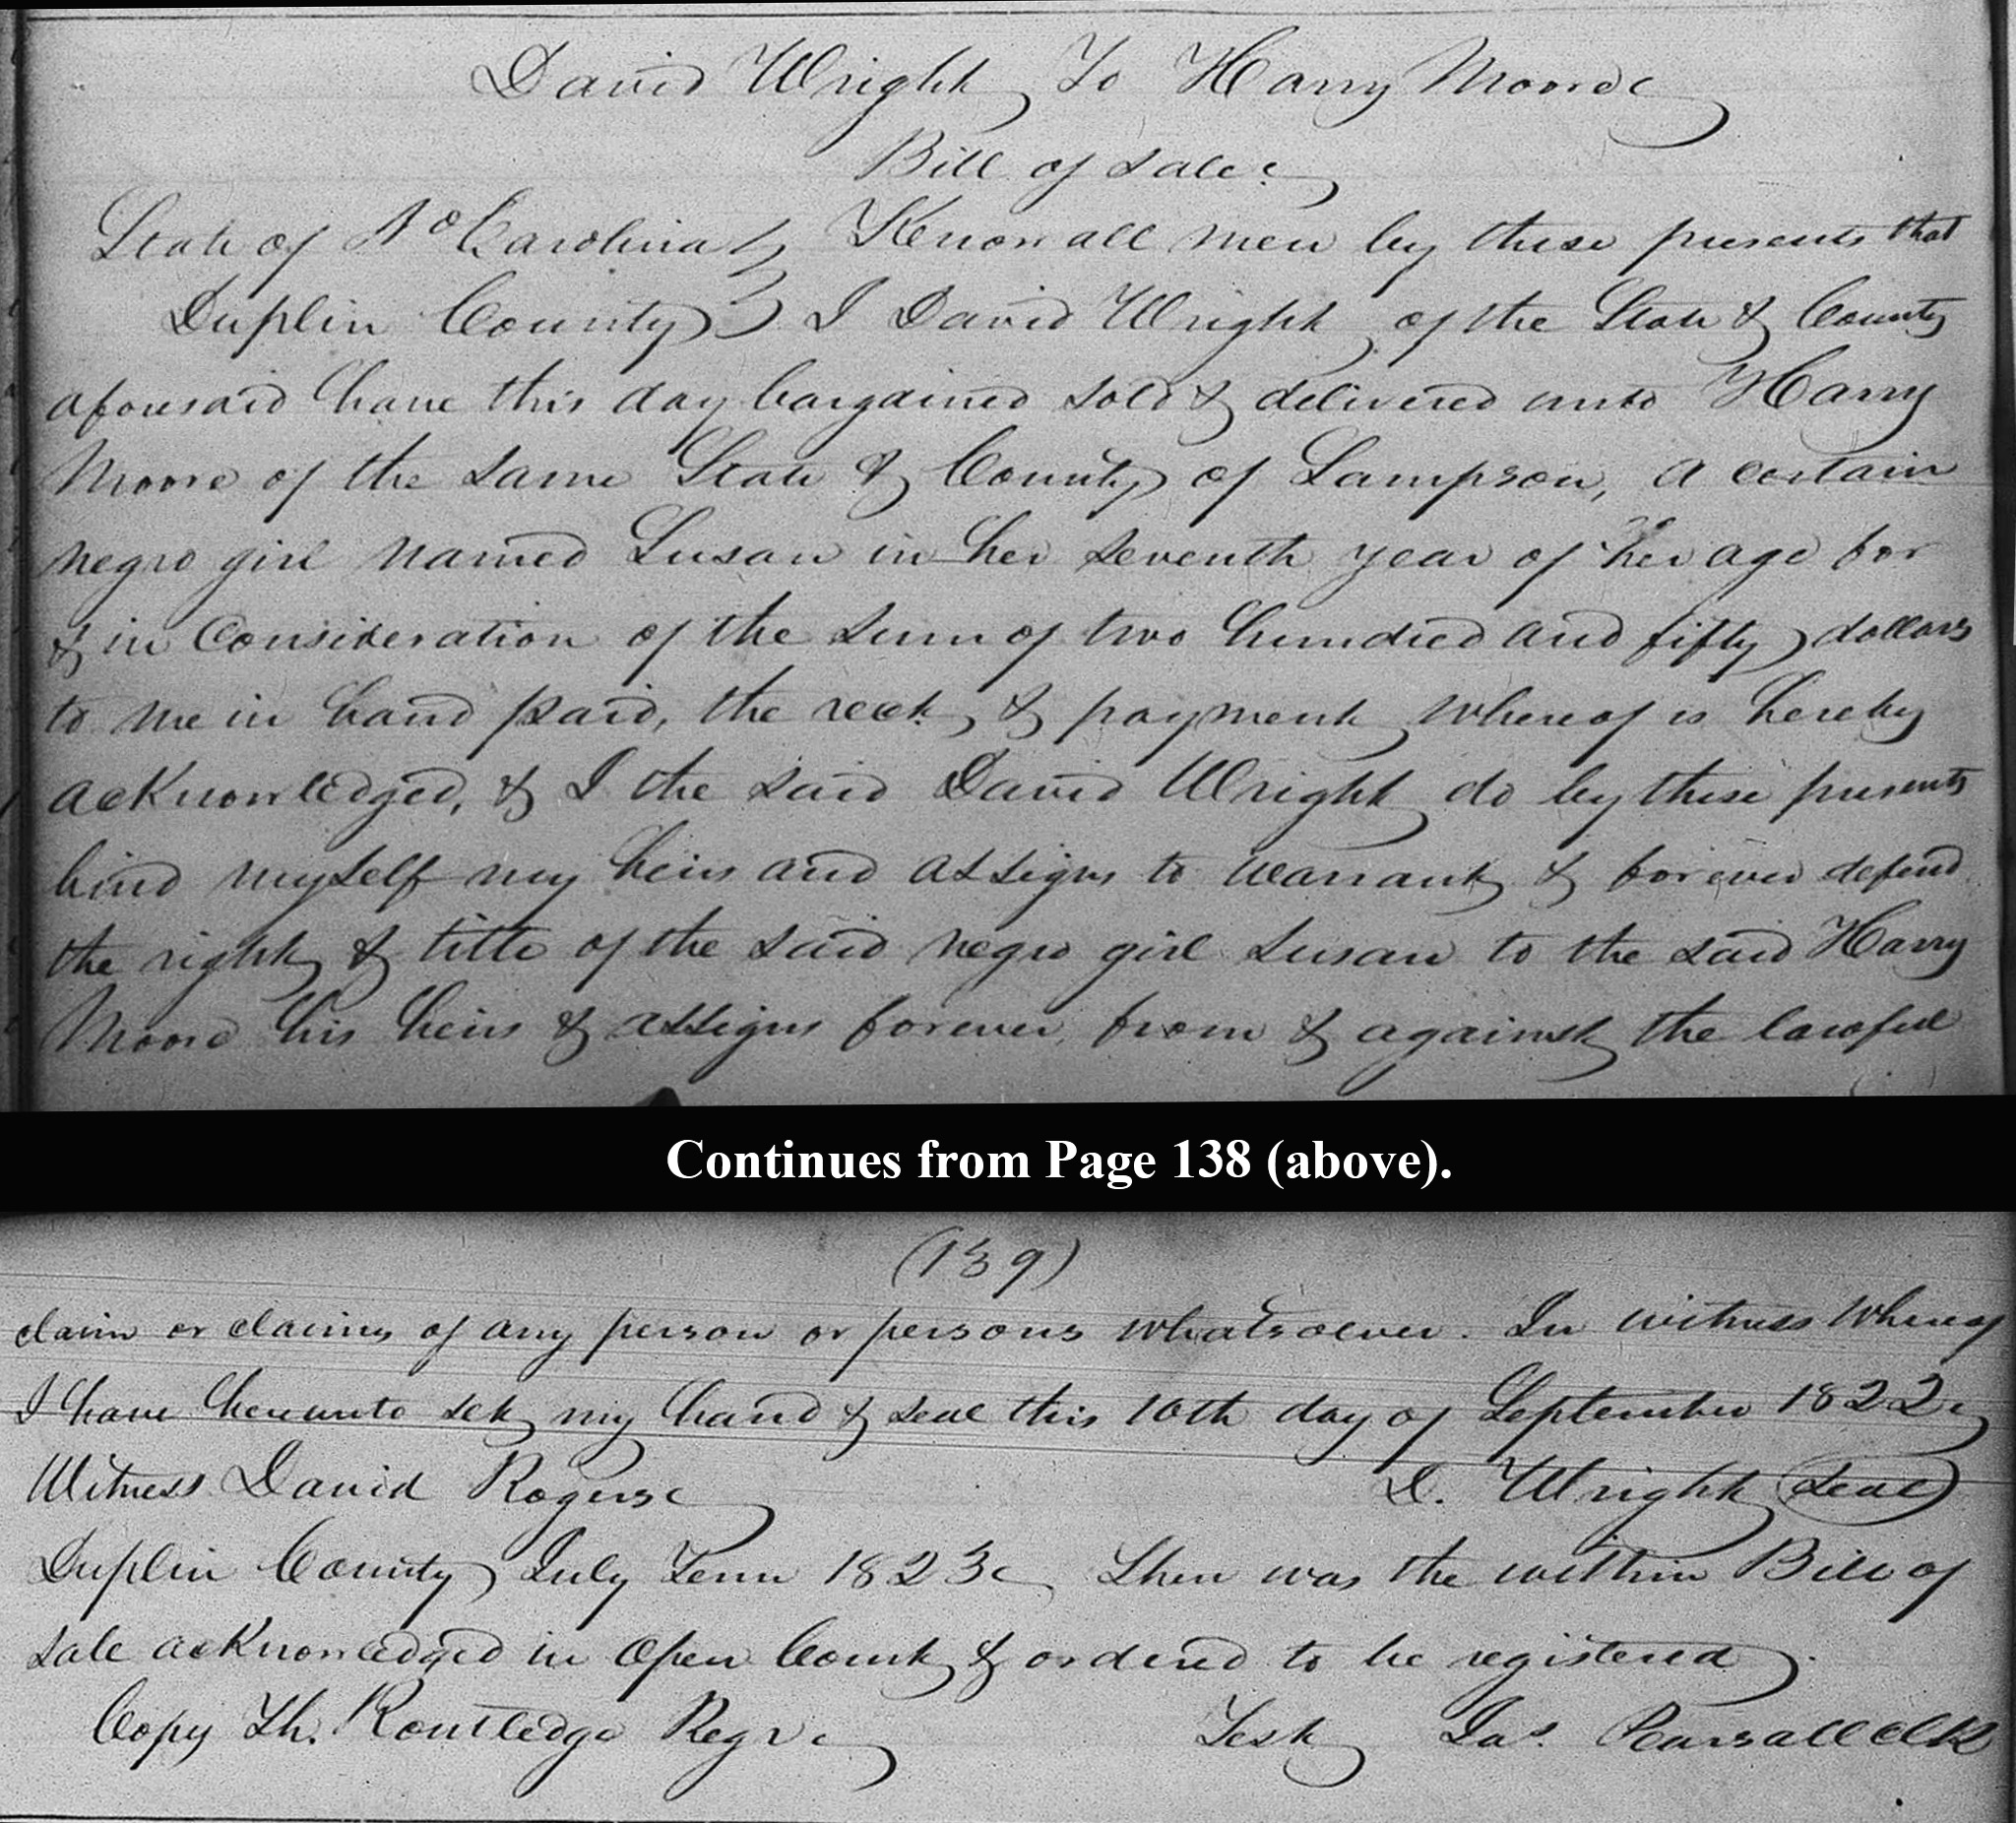 David Wright To Harry Moore
Bill of Sale
State of No Carolina } Know all men by these presents that
Duplin County } I David Wright of the State & County
aforesaid have this day bargained sold & delivered unto Harry
Moore of the same State & County of Sampson, a certain
negro girl named Susan in her seventh year of her age for
& in Consideration of the sum of two hundred and fifty dollars
to me in hand paid, the rect. & payment whereof is hereby
acknowledged, & I the said David Wright do by these presents
bind myself my heirs and assigns to warrant & forever defend
the right & title of the said negro girl Susan to the said Harry
Moore his heirs & assigns forever from & against the lawful
Continues from Page 138 (above).
(139)
claim or claims of any person or persons whatsoever. In witness Whereof
I have hereunto set my hand & seal this 10th day of September 1822
Witness David Rogers D. Wright (Seal)
Duplin County July Term 1823 Then was the within Bill of
Sale acknowledged in Open Court & ordered to be registered.
Copy Th. Routledge Regr. Test Jas. Pearsall Clk